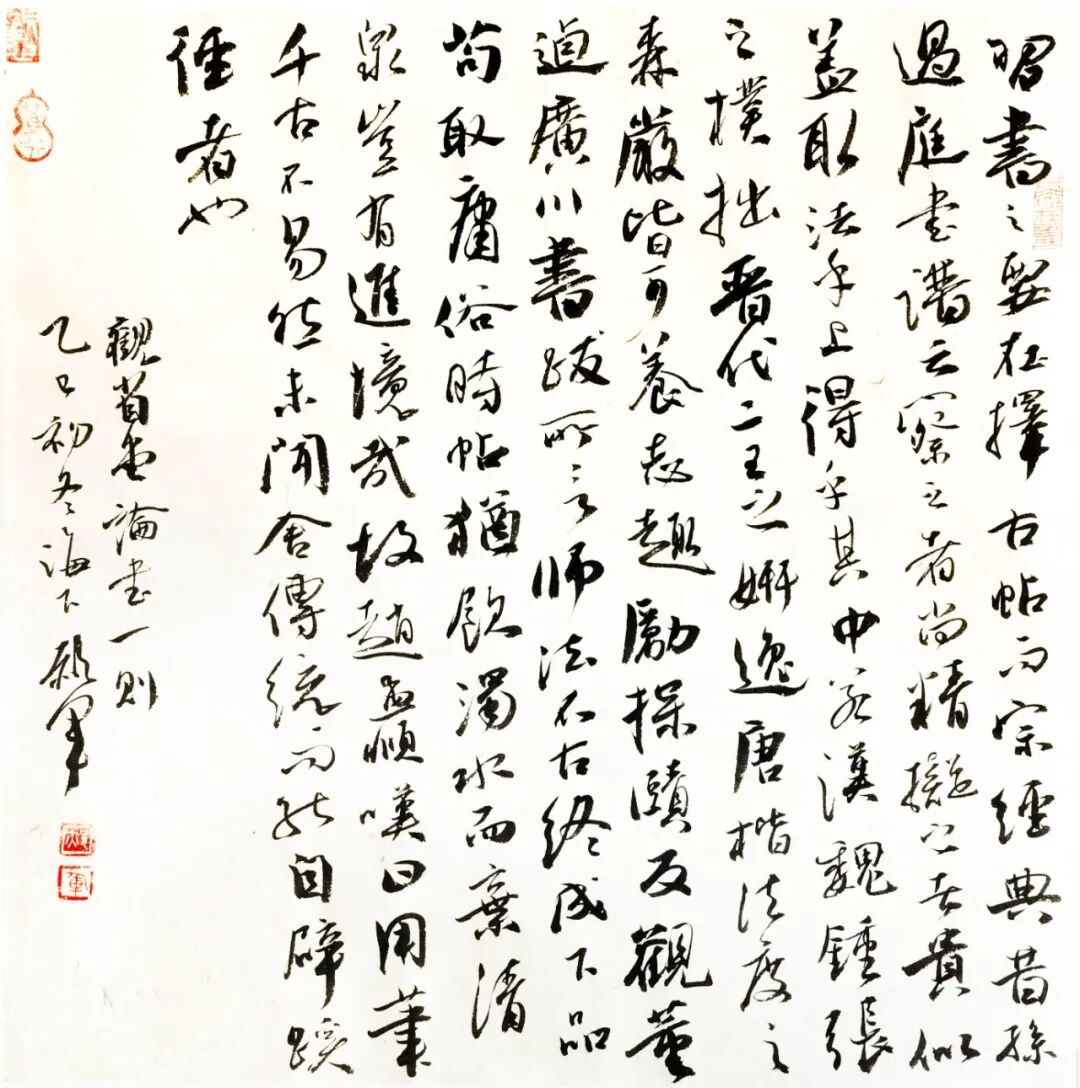 習書之要在擇古帖而宗經典昔孫
過庭書譜云察之者尚精擬之者貴似
蓋取法乎上得乎其中若漢魏鍾張
之樸拙晉代二王之妍逸唐楷法度之
森嚴皆可養志趣勵操頤反觀董
逌廣川書跋所言師法不古終成下品
苟取庸俗時帖猶飲濁水而棄清
泉豈有進境哉故趙孟頫嘆曰用筆
千古不易然未聞舍傳統而能自辟蹊
徑者也
觀省堂論書一則
乙巳初冬海下軍